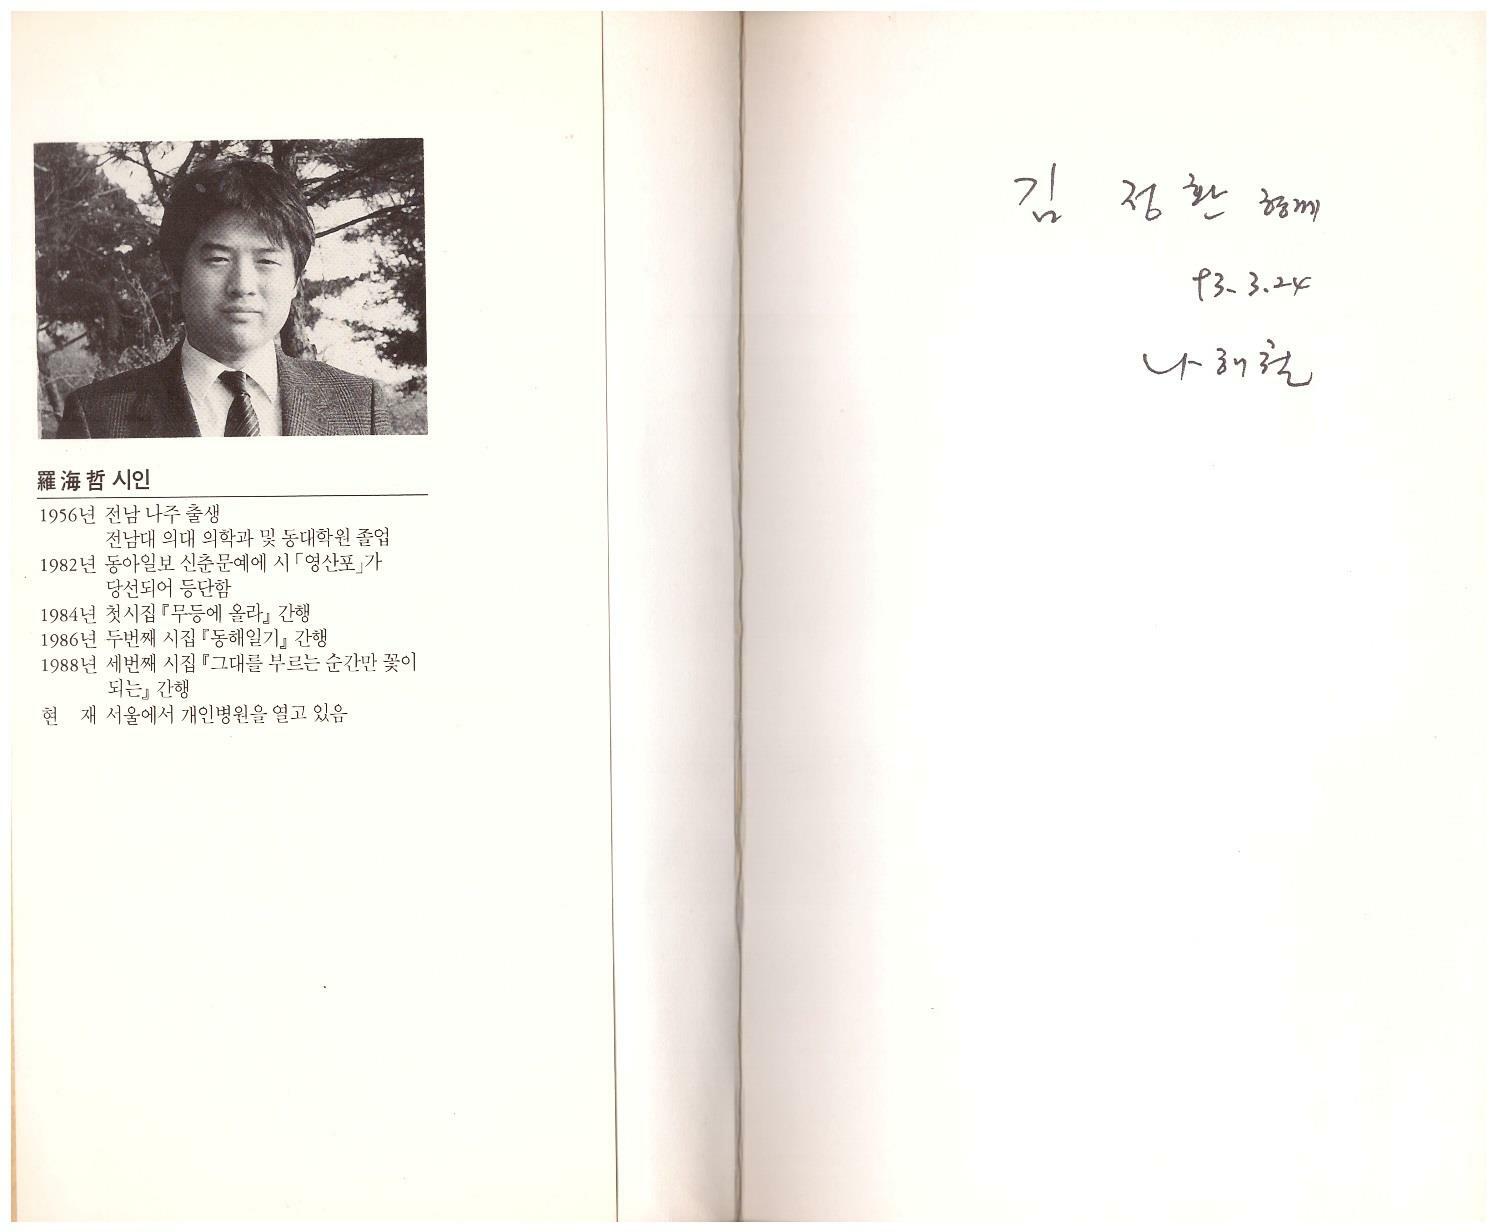 羅海哲 시인
1956년 전남 나주 출생
전남대 의대 의학과 및 동대학원 졸업
1982년 동아일보 신춘문예에 시「영산포」가
당선되어 등단함
1984년 첫시집『무등에 올라』간행
1986년 두번째 시집『동해일기』간행
1988년 세번째 시집『그대를 부르는 순간만 꽃이
되는』간행
현 재 서울에서 개인병원을 열고 있음
김 정환 형께
93. 3. 24
나해철